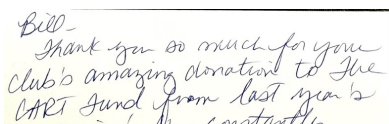 Bill-
Thank you so much for your
club's amazing donation to The
CART Fund from last year's
constantly